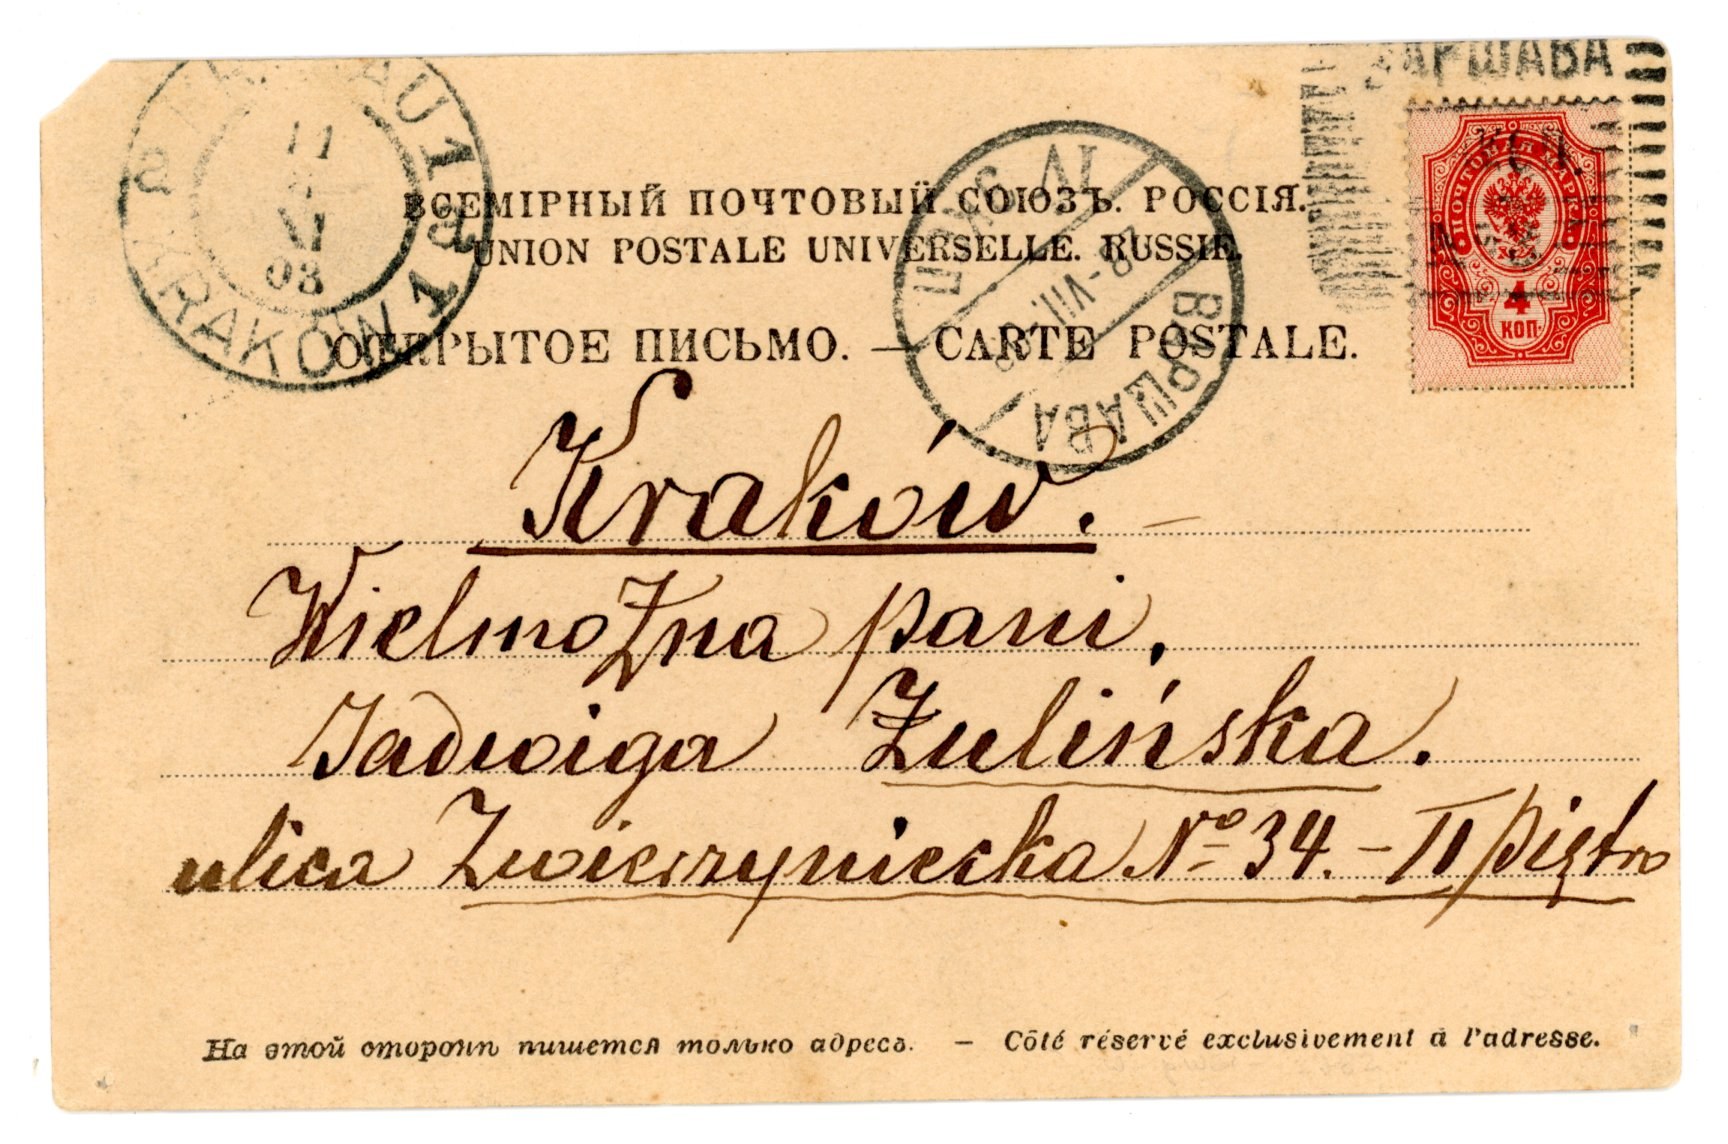 ВАРШАВА
KRAKÓW 1
11
VI
03
ВСЕМІРНЫЙ ПОЧТОВЫЙ СОЮЗЪ. РОССІЯ.
UNION POSTALE UNIVERSELLE. RUSSIE.
ОТКРЫТОЕ ПИСЬМО. — CARTE POSTALE.
ПОЧТОВАЯ МАРКА
4
КОП.
ВАРШАВА
8-VII
Kraków. —
Wielmożna pani,
Jadwiga Żulińska.
ulica Zwierzyniecka № 34. – II piętro
На этой сторонѣ пишется только адресъ. — Côté réservé exclusivement à l'adresse.